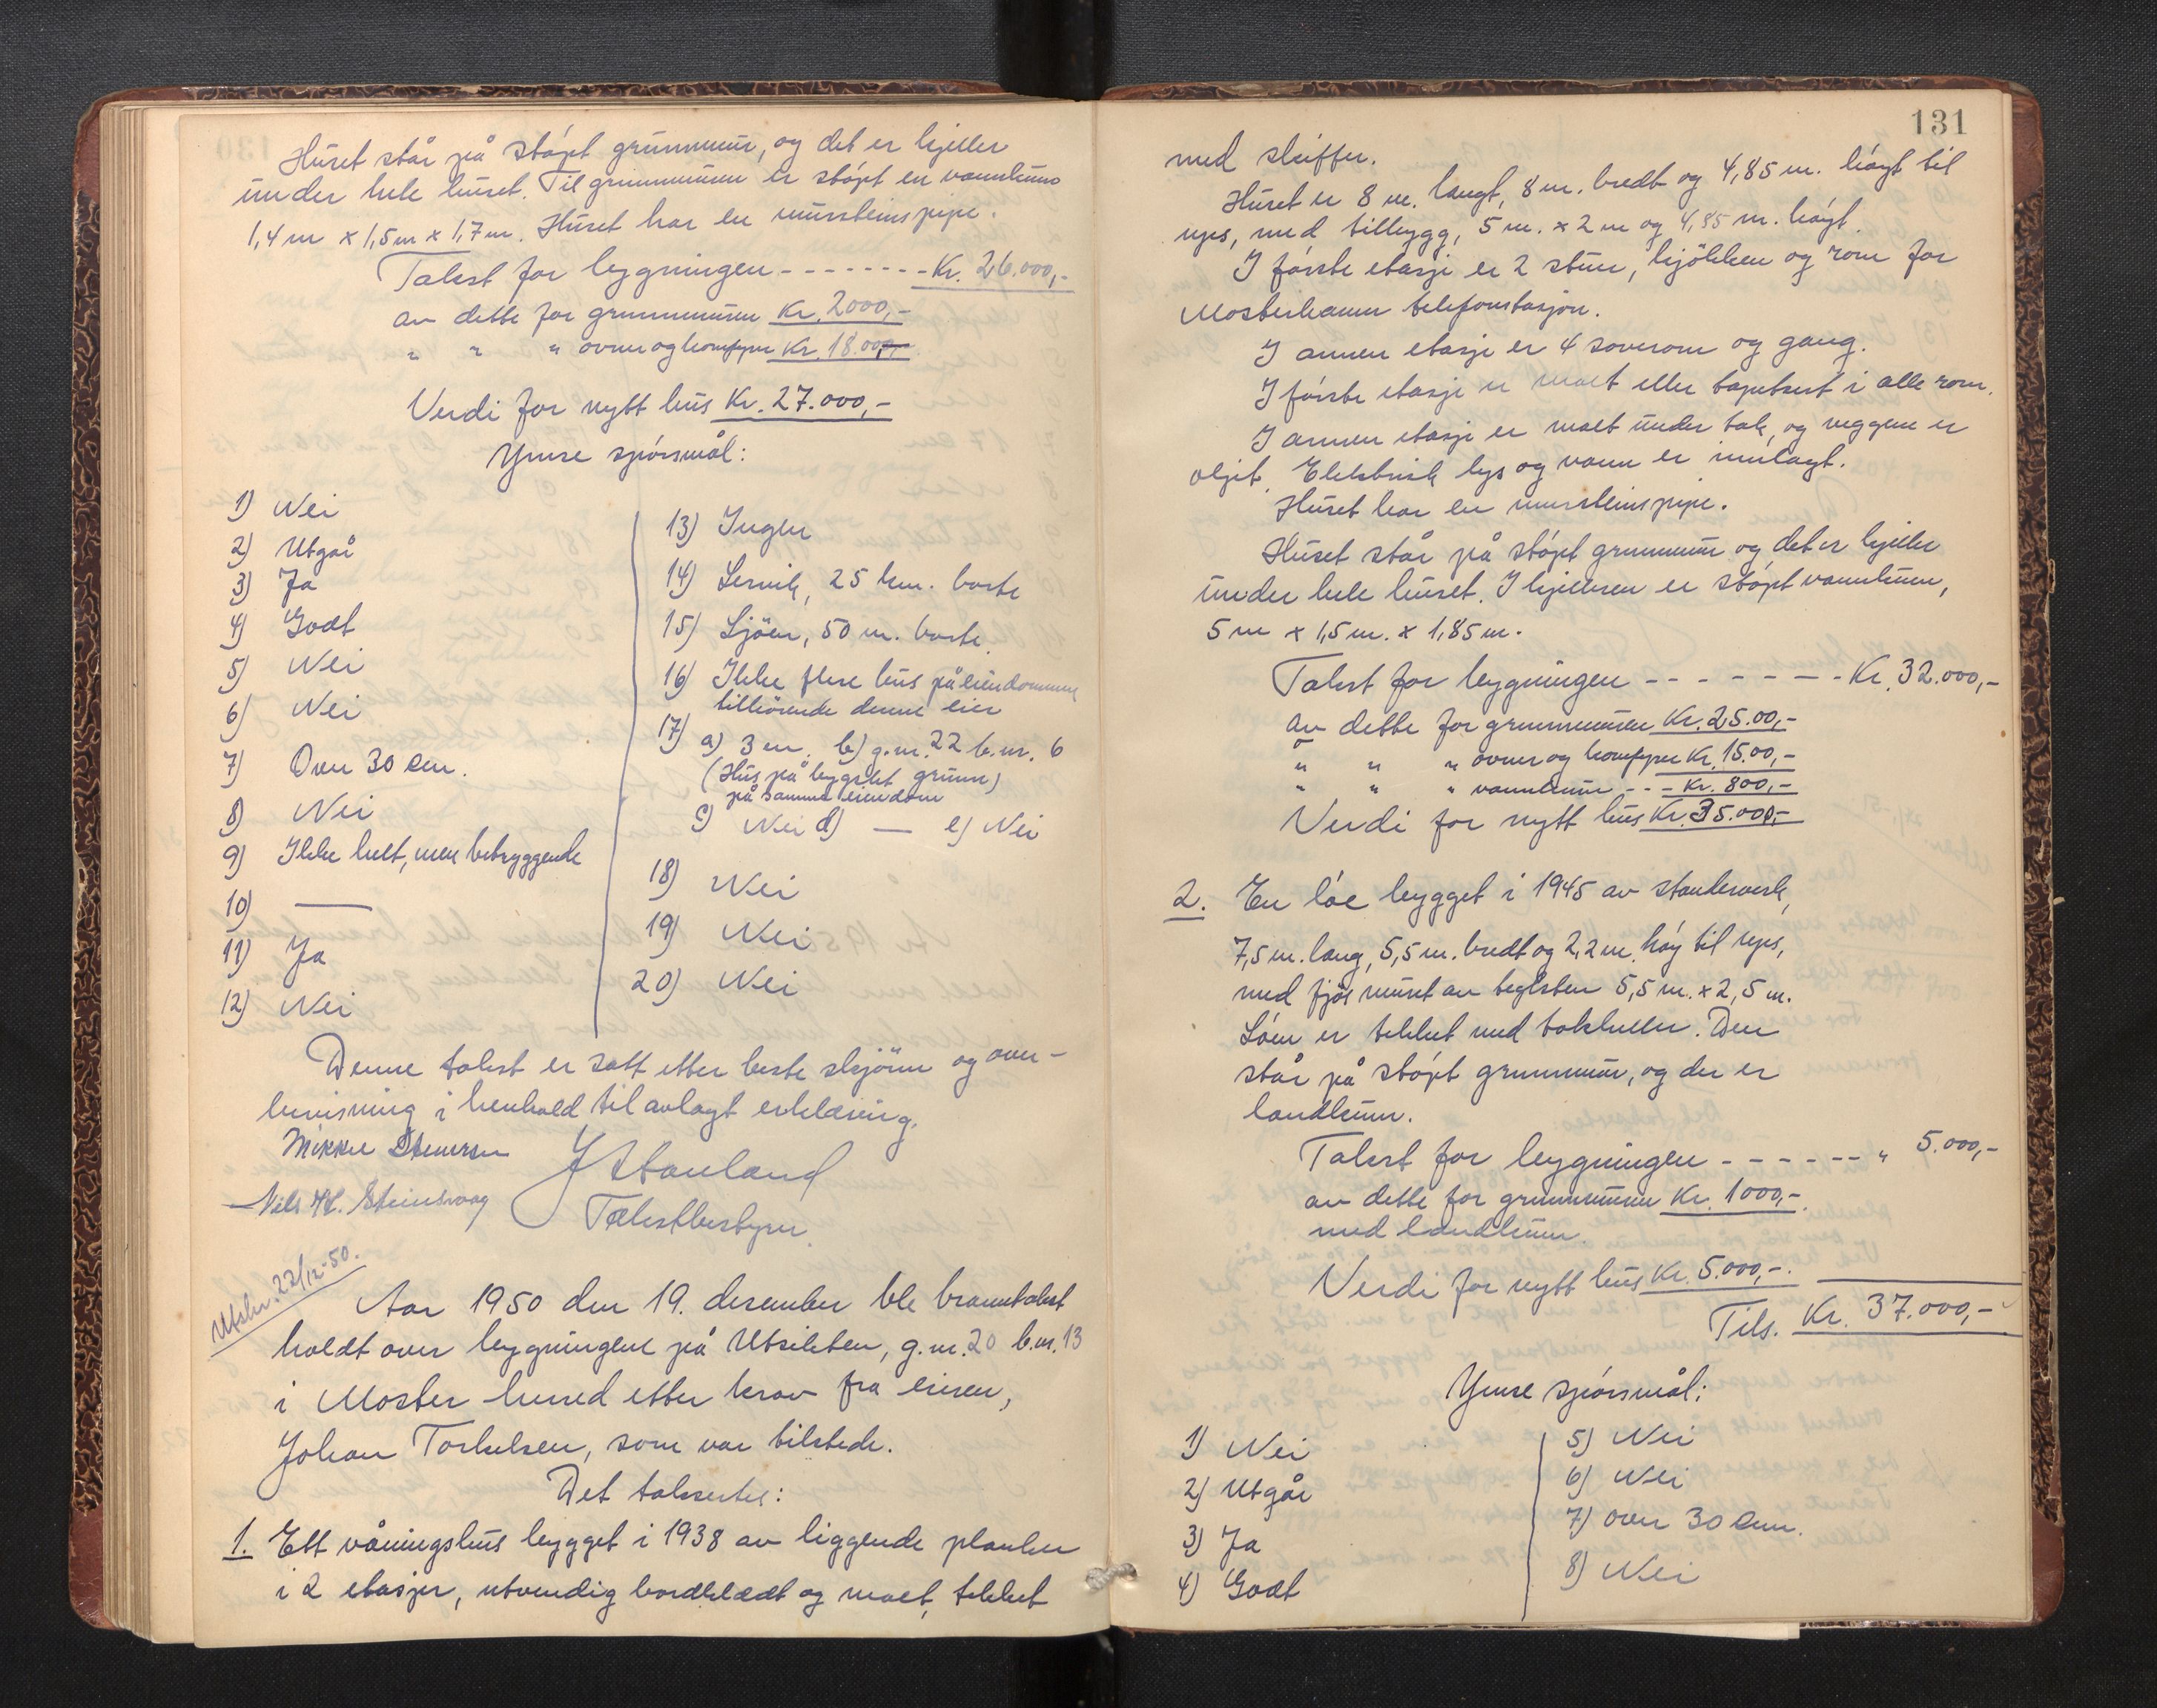 Huset står på støpt grunnmur, og det er kjeller
under hele huset. Til grunnmuren er støpt en vannkum
1,4 m x 1,5 m x 1,7 m. Huset har en mursteinspipe.
Takst for bygningen - - - - - - - - Kr. 26.000,-
av dette for grunnmuren Kr. 2000,-
" " " ovner og komfyrer Kr. 18.00,-
Verdi for nytt hus Kr. 27.000,-
Ymse spørsmål:
1) Nei
2) Utgår
3) Ja
4) Godt
5) Nei
6) Nei
7) Over 30 cm.
8) Nei
9) Ikke helt, men betryggende
10) —
11) Ja
12) Nei
13) Ingen
14) Lervik, 25 km. borte
15) Sjøen, 50 m. borte.
16) Ikke flere hus på eiendommen
tilhørende denne eier
17) a) 3 m. b) g.nr. 22 b.nr. 6
(Hus på bygslet grunn)
på samme eiendom
c) Nei d) — e) Nei
18) Nei
19) Nei
20) Nei
Denne takst er satt etter beste skjønn og over-
bevisning i henhold til avlagt erklæring.
Mikkel Stenersen
Nils H. Steinsvaag
J Stauland
Takstbestyrer.
Utskr. 22/12-50.
Aar 1950 den 19. desember ble branntakst
holdt over bygningene på Utsikten, g.nr. 20 b.nr. 13
i Moster herred etter krav fra eieren,
Johan Torkelsen, som var tilstede.
Det takseres:
1. Ett våningshus bygget i 1938 av liggende planker
i 2 etasjer, utvendig bordkledt og malt, tekket
131
med skiffer.
Huset er 8 m. langt, 8 m. bredt og 4,85 m. høgt til
ups, med tilbygg, 5 m. x 2 m og 4,85 m. høgt.
I første etasje er 2 stuer, kjøkken og rom for
Mosterhamn telefonstasjon.
I annen etasje er 4 soverom og gang.
I første etasje er malt eller tapetsert i alle rom.
I annen etasje er malt under tak, og veggene er
oljet. Elektrisk lys og vann er innlagt.
Huset har en mursteinspipe.
Huset står på støpt grunnmur og det er kjeller
under hele huset. I kjelleren er støpt vannkum,
5 m x 1,5 m. x 1,85 m.
Takst for bygningen - - - - - - - Kr. 32.000,-
av dette for grunnmuren Kr. 25.00,-
" " " ovner og komfyrer Kr. 15.00,-
" " " vannkum - - - Kr. 800,-
Verdi for nytt hus Kr. 35.000,-
2. En løe bygget i 1945 av stenderverk,
7,5 m. lang, 5,5 m. bredt og 2,2 m. høg til ups,
med fjøs muret av teglsten 5,5 m. x 2,5 m.
Løen er tekket med takheller. Den
står på støpt grunnmur, og der er
landkum.
Takst for bygningen - - - - - - " 5.000,-
av dette for grunnmuren Kr. 1000,-
med landkum.
Verdi for nytt hus Kr. 5.000,-.
Tils. Kr. 37.000,-
Ymse spørsmål:
1) Nei
2) Utgår
3) Ja
4) Godt
5) Nei
6) Nei
7) over 30 cm.
8) Nei